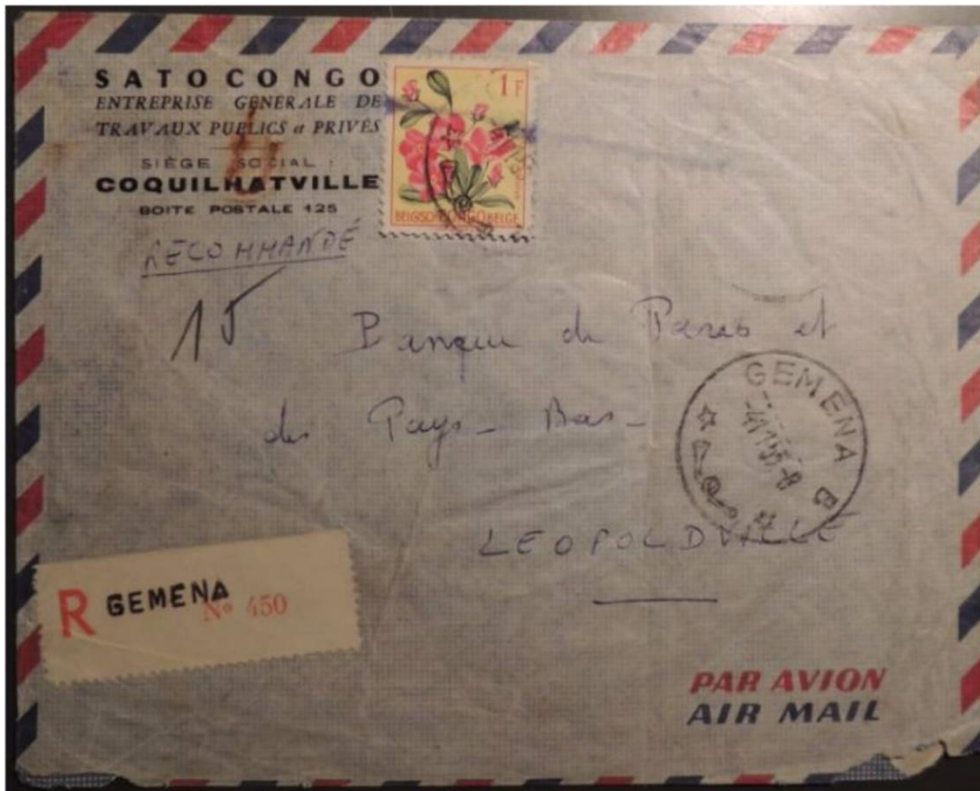 SATO CONGO
ENTREPRISE GÉNÉRALE DE
TRAVAUX PUBLICS et PRIVÉS
SIÈGE SOCIAL :
COQUILHATVILLE
BOITE POSTALE 125
1 F
BELGISCH CONGO BELGE
RECOMMANDÉ
15
Banque de Paris et
des Pays-Bas-
GEMENA
B
LEOPOLDVILLE
R GEMENA
Nº 450
PAR AVION
AIR MAIL